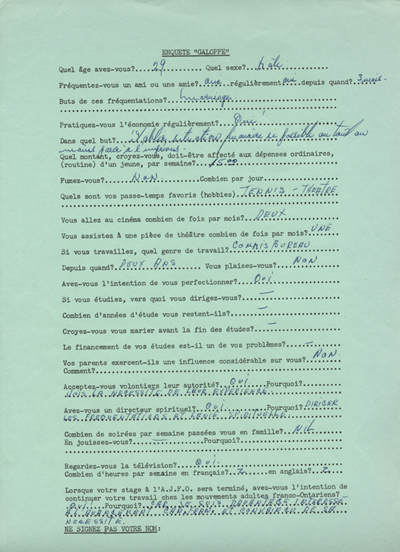 ENQUETE "GALOPPE"
Quel âge avez-vous? 29 Quel sexe? Mâle
Fréquentez-vous un ami ou une amie? oui régulièrement oui depuis quand? 3 mois
Buts de ces fréquentations? mariage
Pratiquez-vous l'économie régulièrement? Oui
Dans quel but? situation financière
Quel montant, croyez-vous, doit-être affecté aux dépenses ordinaires,
(routine) d'un jeune, par semaine?
Fumez-vous? NON Combien par jour
Quels sont vos passe-temps favoris (hobbies) TENNIS - THEATRE
Vous allez au cinéma combien de fois par mois? DEUX
Vous assistez A une pièce de théâtre combien de fois par mois? UNE
Si vous travaillez, quel genre de travail? COMMIS BUREAU
Depuis quand? DEUX ANS Vous plaisez-vous? NON
Avez-vous l'intention de vous perfectionner? Oui
Si vous étudiez, vers quoi vous dirigez-vous? —
Combien d'années d'étude vous restent-ils? —
Croyez-vous vous marier avant la fin des études? —
Le financement de vos études est-il un de vos problèmes? —
Vos parents exercent-ils une influence considérable sur vous? NON
Comment?
Acceptez-vous volontiers leur autorité? Oui Pourquoi?
VOIS LA NECESSITE DE LEUR EXPERIENCE
Avez-vous un directeur spirituel? Oui Pourquoi? DIRIGER
LES FREQUENTATIONS ET LA VIE SPIRITUELLE
Combien de soirées par semaine passées vous en famille? NIL
En jouissez-vous? Pourquoi?
Regardez-vous la télévision? Oui
Combien d'heures par semaine en français? 2 en anglais? 2
Lorsque votre stage A l'A.J.F.O. sera terminé, avez-vous l'intention de
continuer votre travail chez les mouvements adultes franco-Ontariens?
Oui Pourquoi? CAR JE SUIS DAVANTAGE INTERESSE
ET CONVAINCU DE SA
NECESSITE
NE SIGNEZ PAS VOTRE NOM: